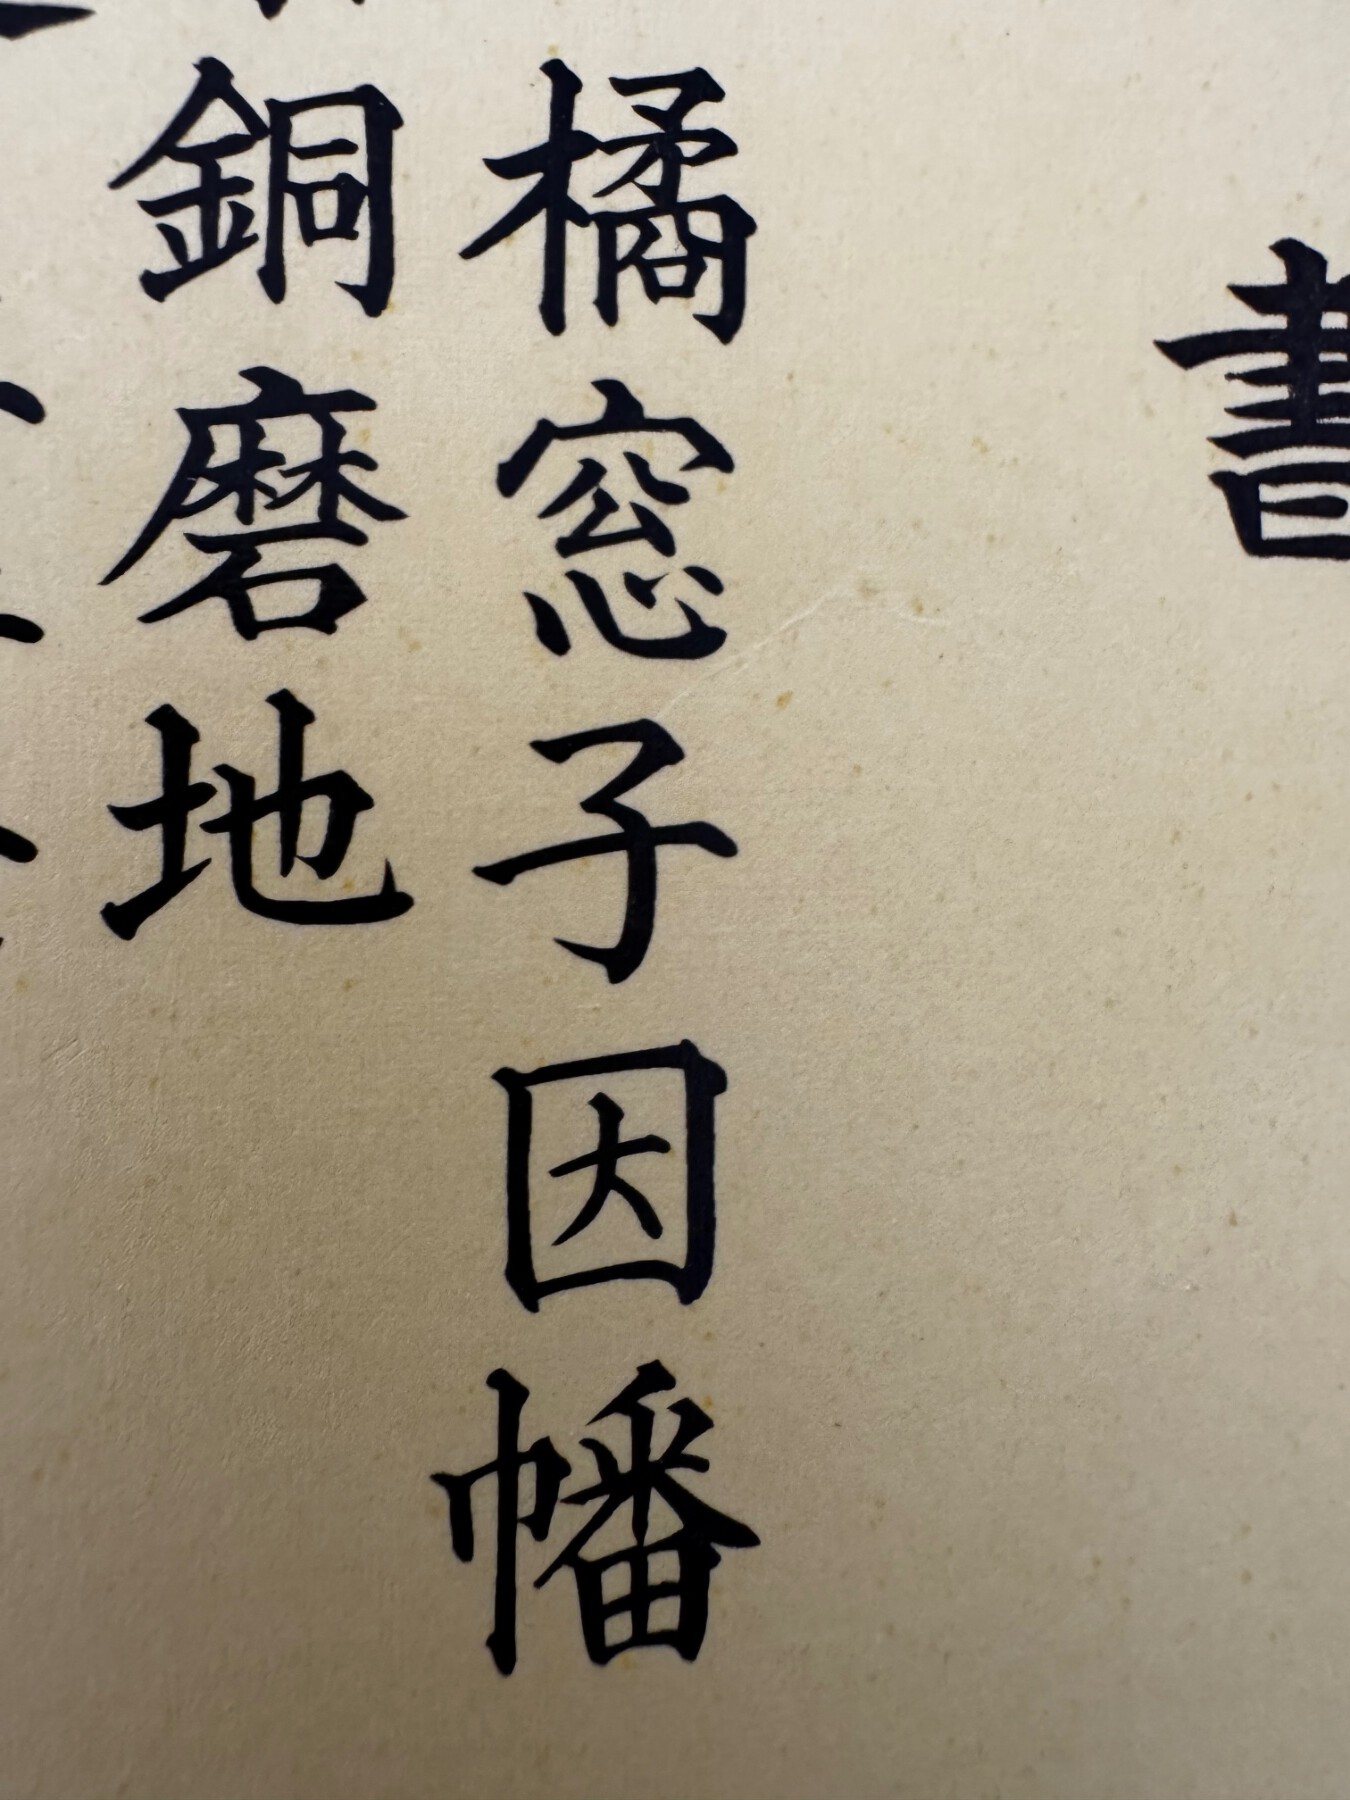 書
橘窓子因幡
銅磨地